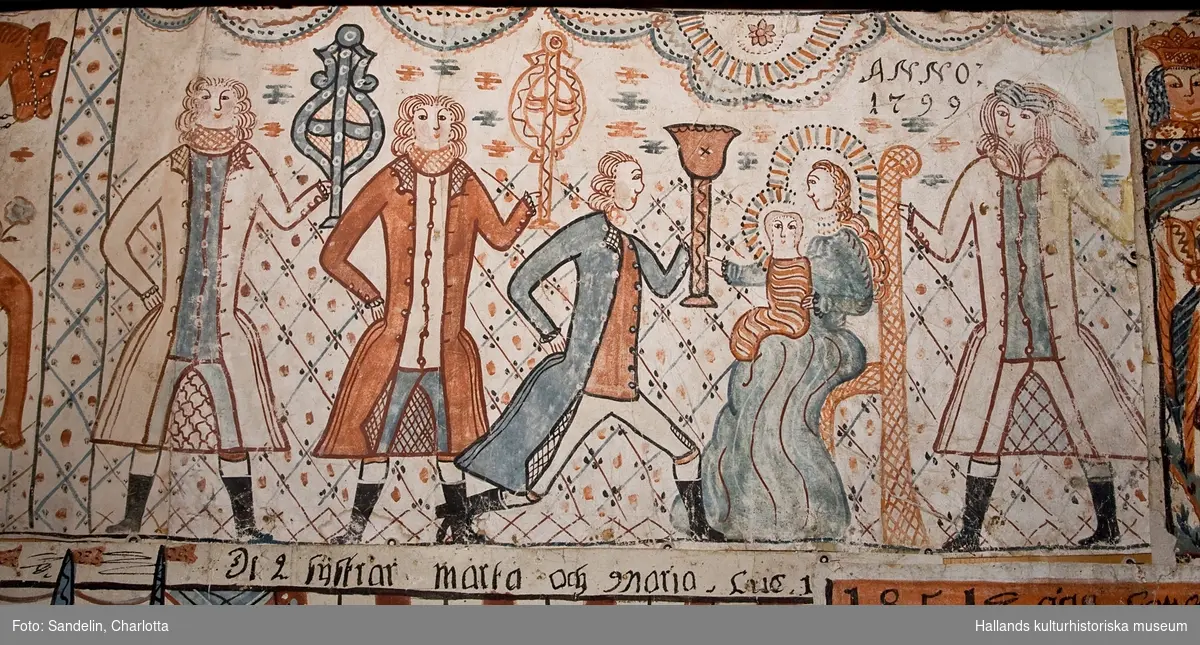 ANNO:
1799
Di 2 systrar marta och maria. Luc. 1
Foto: Sandelin, Charlotta
Hallands kulturhistoriska museum